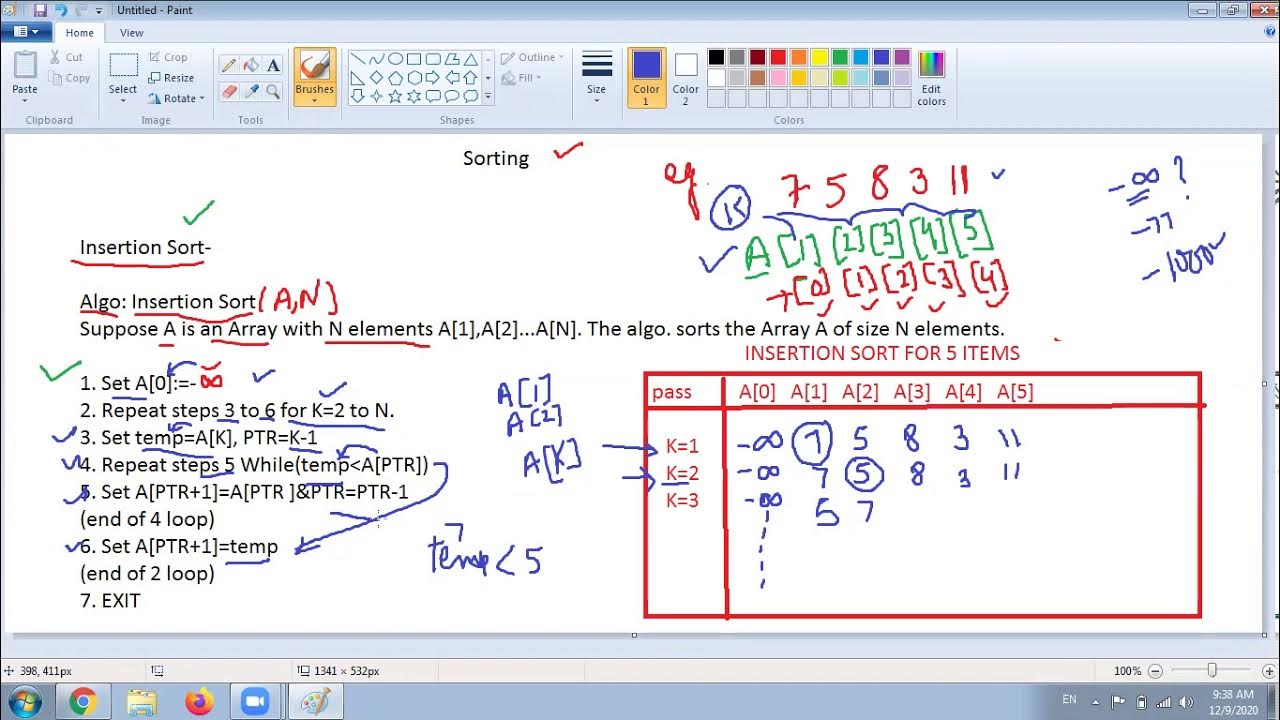 Untitled - Paint
Home View
Paste
Cut
Copy
Clipboard
Select
Crop
Resize
Rotate
Image
Tools
Brushes
Shapes
Outline
Fill
Size
Color 1
Color 2
Edit colors
Colors
Sorting
eg 7 5 8 3 11
K
A [1] [2] [3] [4] [5]
[0] [1] [2] [3] [4]
-∞ ?
-77
-1000
Insertion Sort-
Algo: Insertion Sort (A,N)
Suppose A is an Array with N elements A[1],A[2]...A[N]. The algo. sorts the Array A of size N elements.
1. Set A[0]:=-∞
2. Repeat steps 3 to 6 for K=2 to N.
3. Set temp=A[K], PTR=K-1
4. Repeat steps 5 While(temp<A[PTR])
5. Set A[PTR+1]=A[PTR ]&PTR=PTR-1
(end of 4 loop)
6. Set A[PTR+1]=temp
(end of 2 loop)
7. EXIT
A[1]
A[2]
A[K]
7
temp < 5
INSERTION SORT FOR 5 ITEMS
pass A[0] A[1] A[2] A[3] A[4] A[5]
K=1 -∞ 7 5 8 3 11
K=2 -∞ 7 5 8 3 11
K=3 -∞ 5 7
398, 411px
1341 × 532px
100%
EN
9:38 AM
12/9/2020